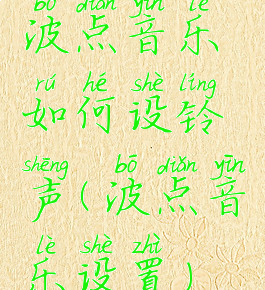 bō diǎn yīn lè
波点音乐
rú hé shè líng
如何设铃
shēng bō diǎn yīn
声(波点音
lè shè zhì
乐设置)